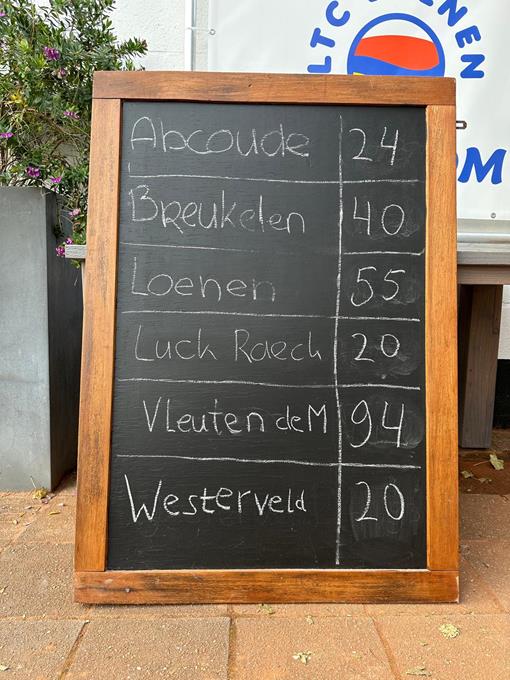 LTC LOENEN
OM
Abcoude 24
Breukelen 40
Loenen 55
Luck Raeck 20
Vleuten de M 94
Westerveld 20